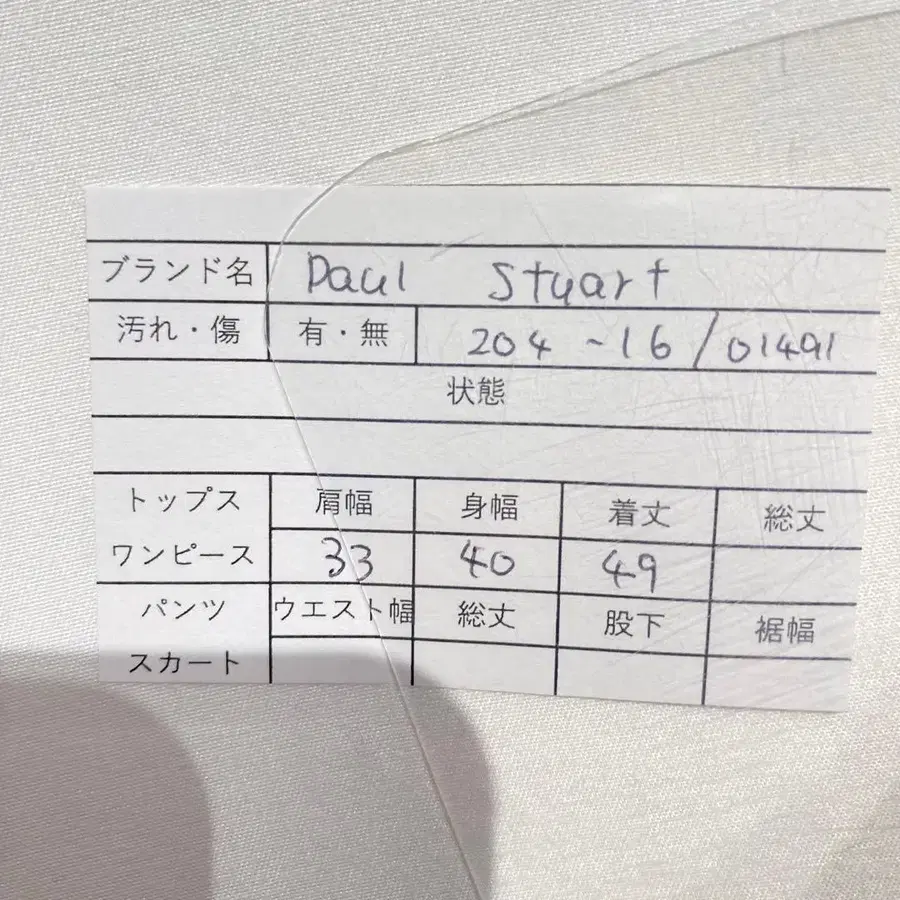 ブランド名 Paul Stuart
汚れ・傷 有・無 204-16/01491
状態
トップス 肩幅 身幅 着丈 総丈
ワンピース 33 40 49
パンツ ウエスト幅 総丈 股下 裾幅
スカート